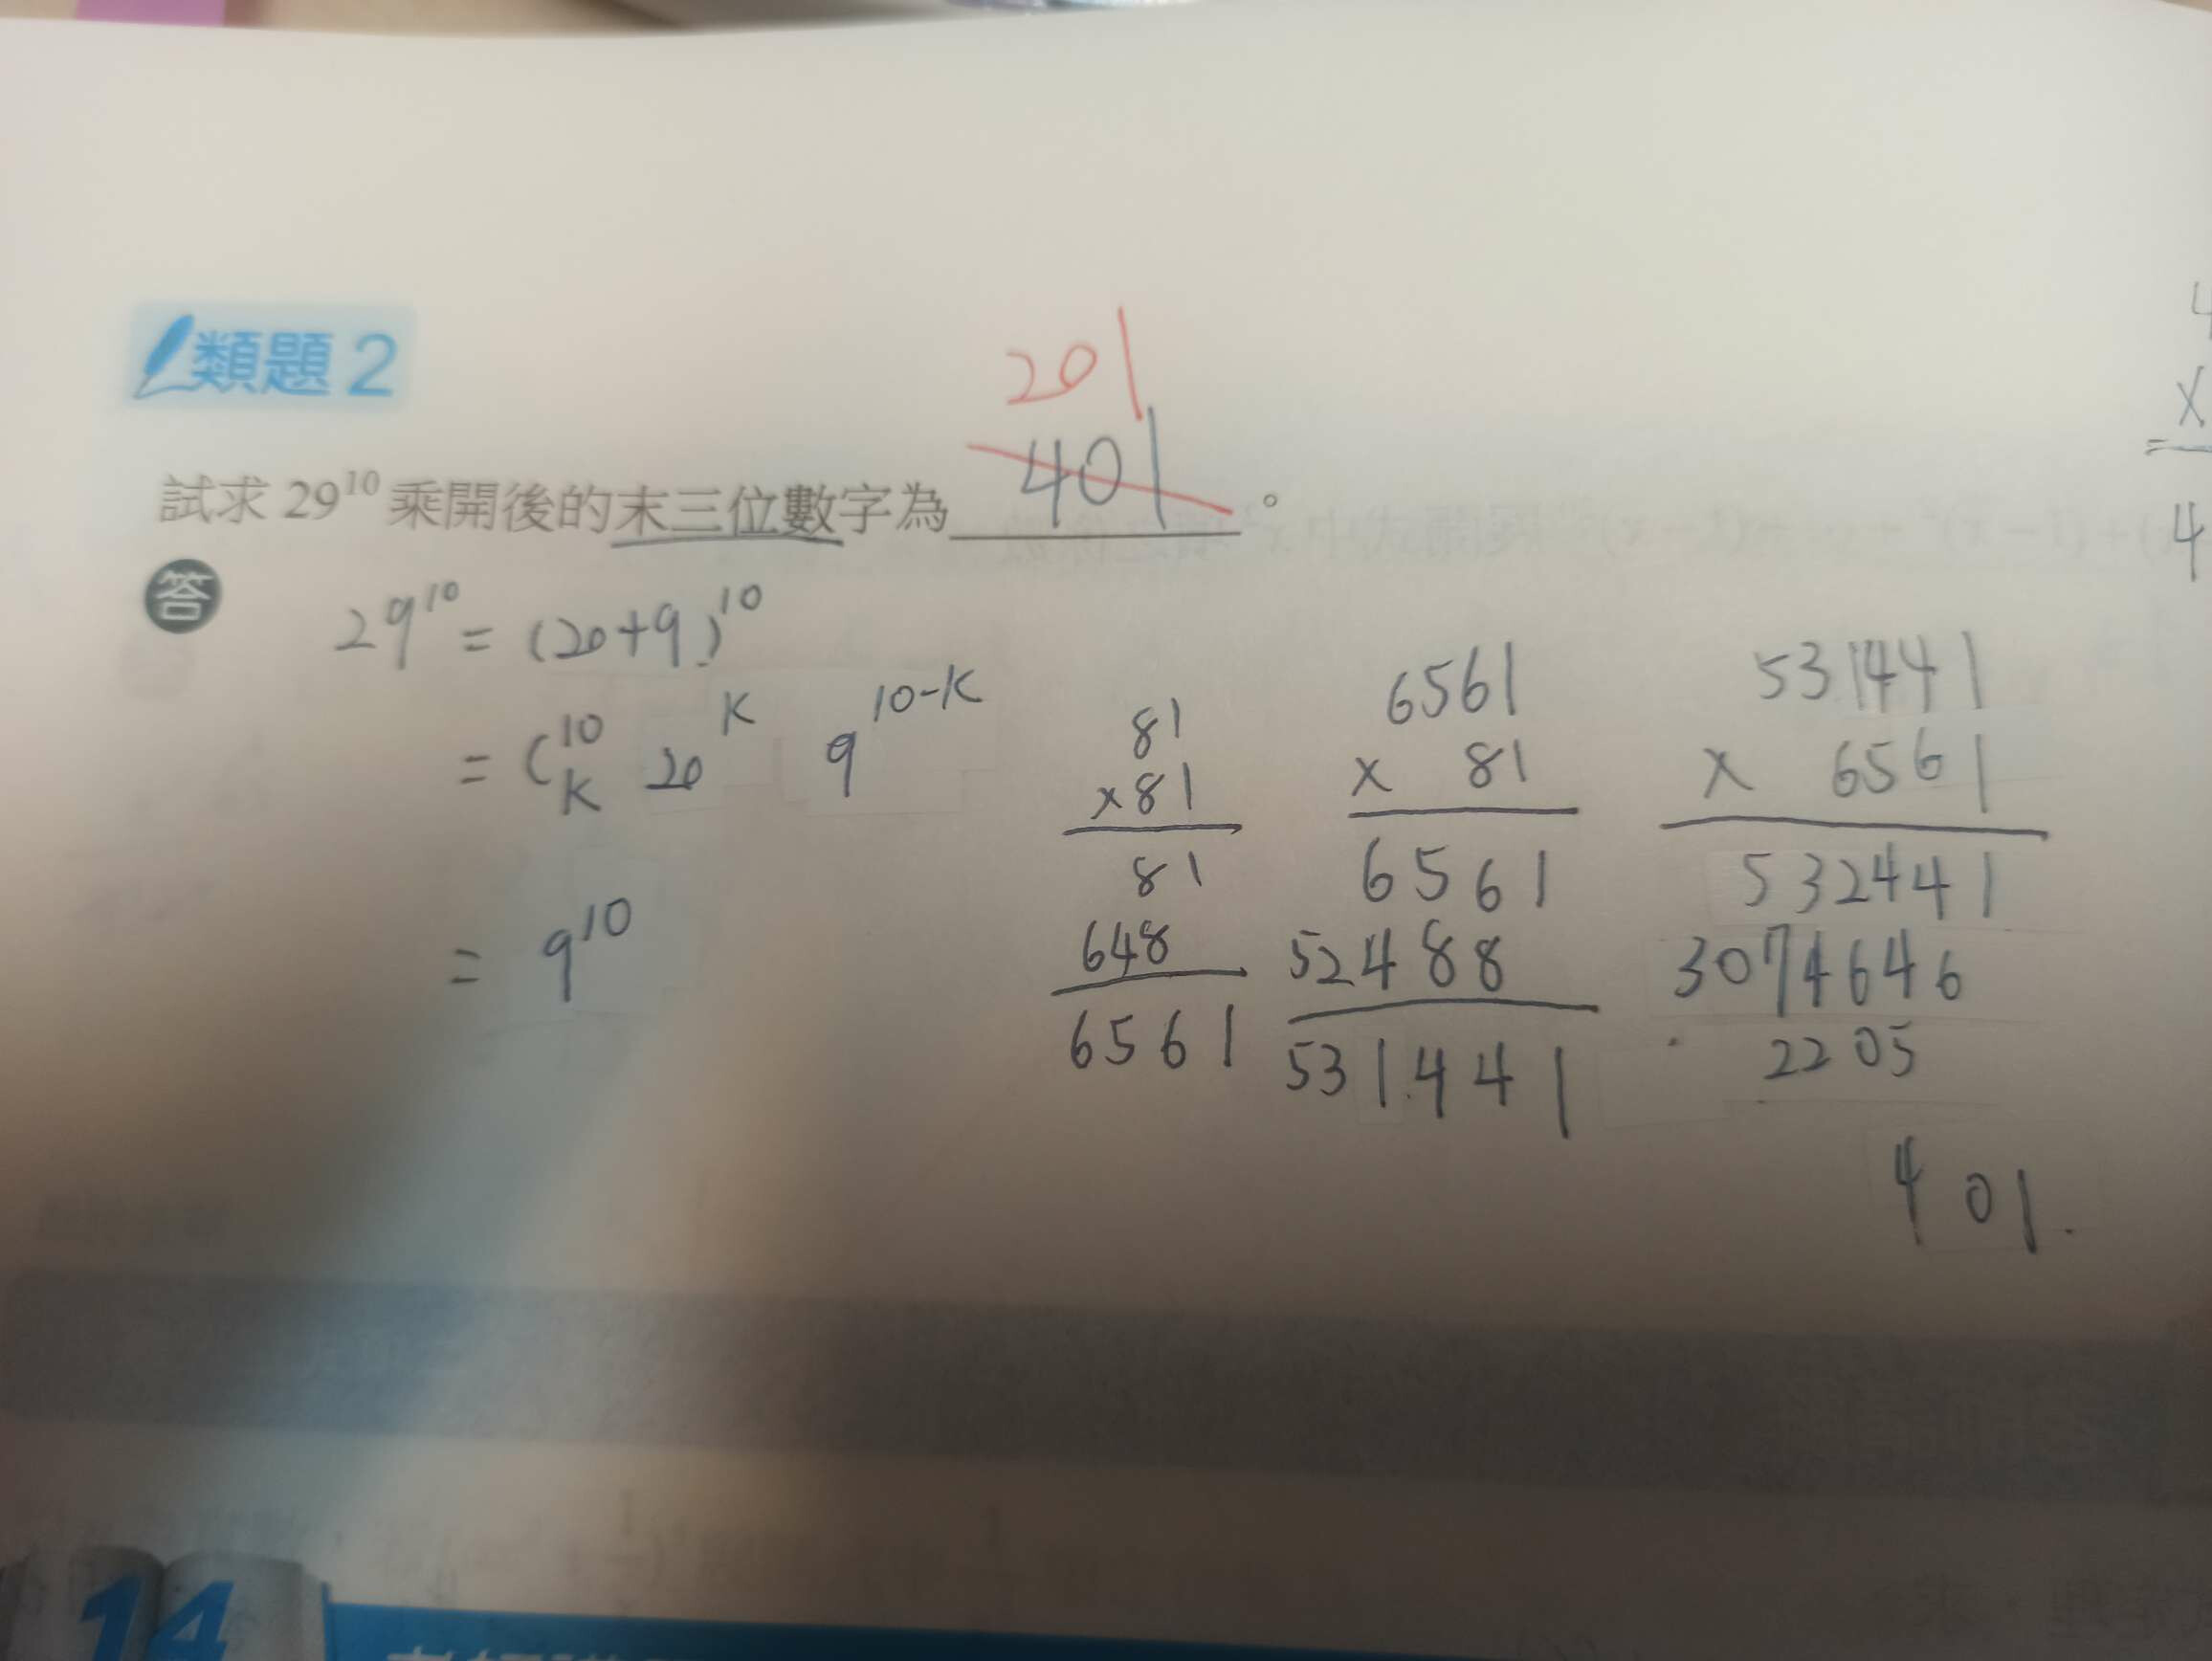 類題2
201
試求 29^10 乘開後的末三位數字為 401 。
答
29^10 = (20+9)^10
= C^10_K 20^K 9^10-K
= 9^10
81
×81
81
648
6561
6561
× 81
6561
52488
531441
531441
× 6561
532441
3074646
2205
401.
4
×
=
4
14